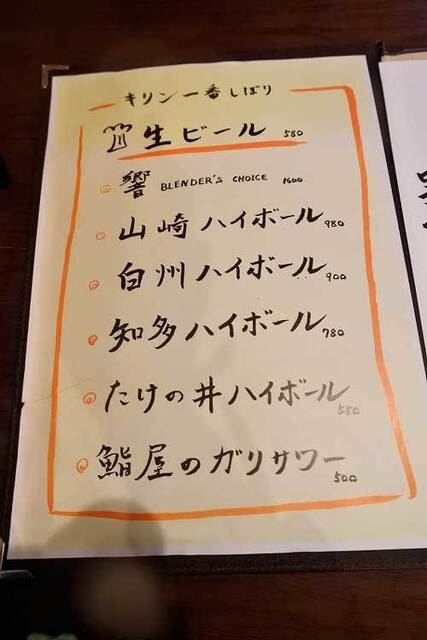 キリン一番しぼり
生ビール 580
響 BLENDER'S CHOICE 1600
山崎ハイボール 980
白州ハイボール 900
知多ハイボール 780
たけの井ハイボール 550
鮨屋のガリサワー 500